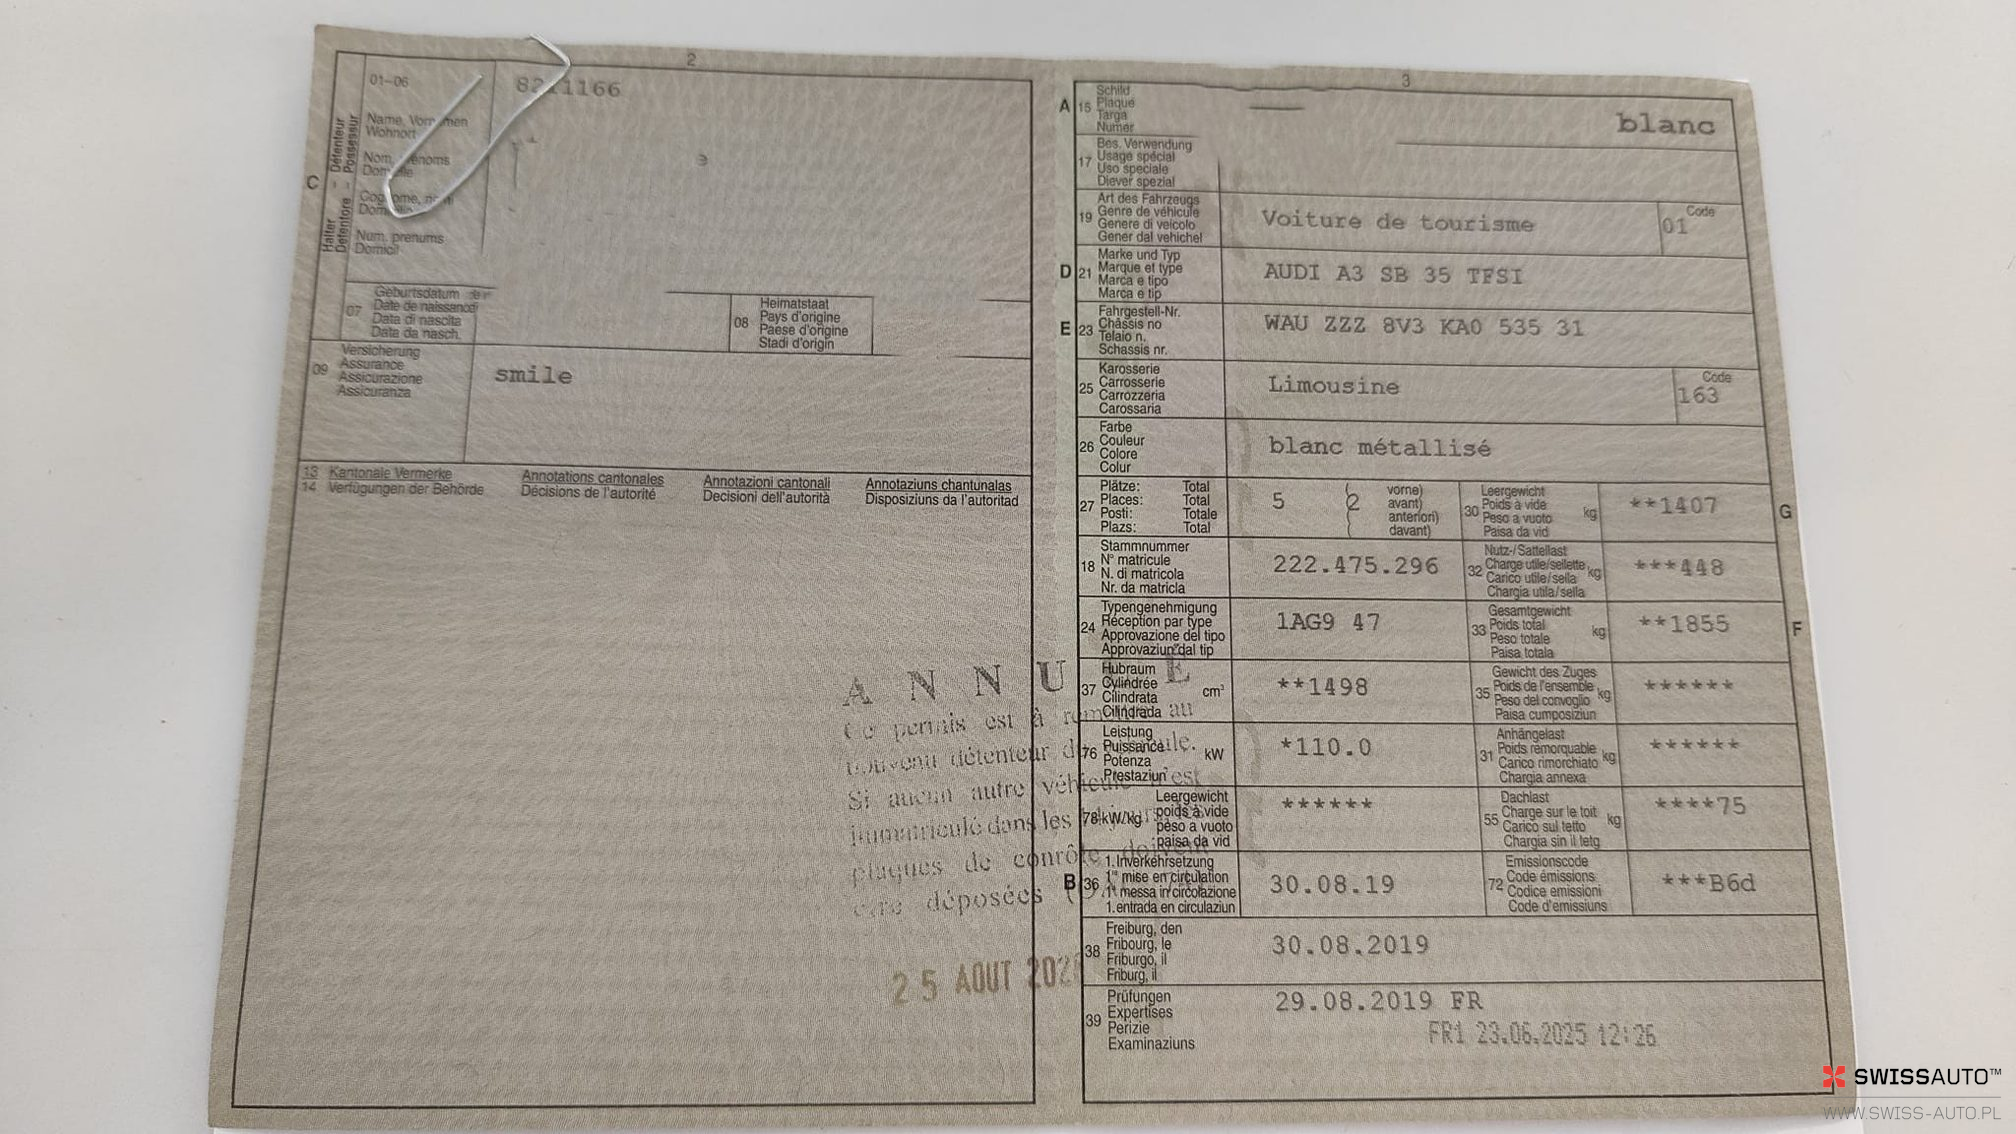 2
01-06
Name, Vornamen
Wohnort
Nom, prénoms
Domicile
Num, prenums
Domicil
C
Halter - Détenteur
Detentore - Possessur
07
Geburtsdatum
Date de naissance
Data di nascita
Data da nasch.
08
Heimatstaat
Pays d'origine
Paese d'origine
Stadi d'origin
09
Versicherung
Assurance
Assicurazione
Assicuranza
smile
13 Kantonale Vermerke
14 Verfügungen der Behörde
Annotations cantonales
Décisions de l'autorité
Annotazioni cantonali
Decisioni dell'autorità
Annotaziuns chantunalas
Disposiziuns da l'autoritad
ANNULE
Ce permis est à remettre au
nouveau détenteur du véhicule.
Si aucun autre véhicule n'est
immatriculé dans les
plaques de contrôle doivent
être déposées
25 AOUT
3
A 15
Schild
Plaque
Targa
Numer
blanc
17
Bes. Verwendung
Usage spécial
Uso speciale
Diever spezial
19
Art des Fahrzeugs
Genre de véhicule
Genere di veicolo
Gener dal vehichel
Voiture de tourisme
Code
01
D 21
Marke und Typ
Marque et type
Marca e tipo
Marca e tip
AUDI A3 SB 35 TFSI
E 23
Fahrgestell-Nr.
Châssis no
Telaio n.
Schassis nr.
WAU ZZZ 8V3 KA0 535 31
25
Karosserie
Carrosserie
Carrozzeria
Carossaria
Limousine
Code
163
26
Farbe
Couleur
Colore
Colur
blanc métallisé
27
Plätze: Total
Places: Total
Posti: Totale
Plazs: Total
5
(2
vorne)
avant)
anteriori)
davant)
30
Leergewicht
Poids à vide
Peso a vuoto
Paisa da vid
kg
**1407
G
18
Stammnummer
N° matricule
N. di matricola
Nr. da matricla
222.475.296
32
Nutz-/Sattellast
Charge utile/sellette
Carico utile/sella
Chargia utila/sella
kg
***448
24
Typengenehmigung
Réception par type
Approvazione del tipo
Approvaziun dal tip
1AG9 47
33
Gesamtgewicht
Poids total
Peso totale
Paisa totala
kg
**1855
F
37
Hubraum
Cylindrée
Cilindrata
Cilindrada
cm³
**1498
35
Gewicht des Zuges
Poids de l'ensemble
Peso del convoglio
Paisa cumposiziun
kg
******
76
Leistung
Puissance
Potenza
Prestaziun
kW
*110.0
31
Anhängelast
Poids remorquable
Carico rimorchiato
Chargia annexa
kg
******
78 kW/kg
Leergewicht
poids à vide
peso a vuoto
paisa da vid
******
55
Dachlast
Charge sur le toit
Carico sul tetto
Chargia sin il tetg
kg
****75
B 36
1. Inverkehrsetzung
1re mise en circulation
1a messa in circolazione
1. entrada en circulaziun
30.08.19
72
Emissionscode
Code émissions
Codice emissioni
Code d'emissiuns
***B6d
38
Freiburg, den
Fribourg, le
Friburgo, il
Friburg, il
30.08.2019
39
Prüfungen
Expertises
Perizie
Examinaziuns
29.08.2019 FR
FR1 23.06.2025 12:26
SWISSAUTO™
WWW.SWISS-AUTO.PL